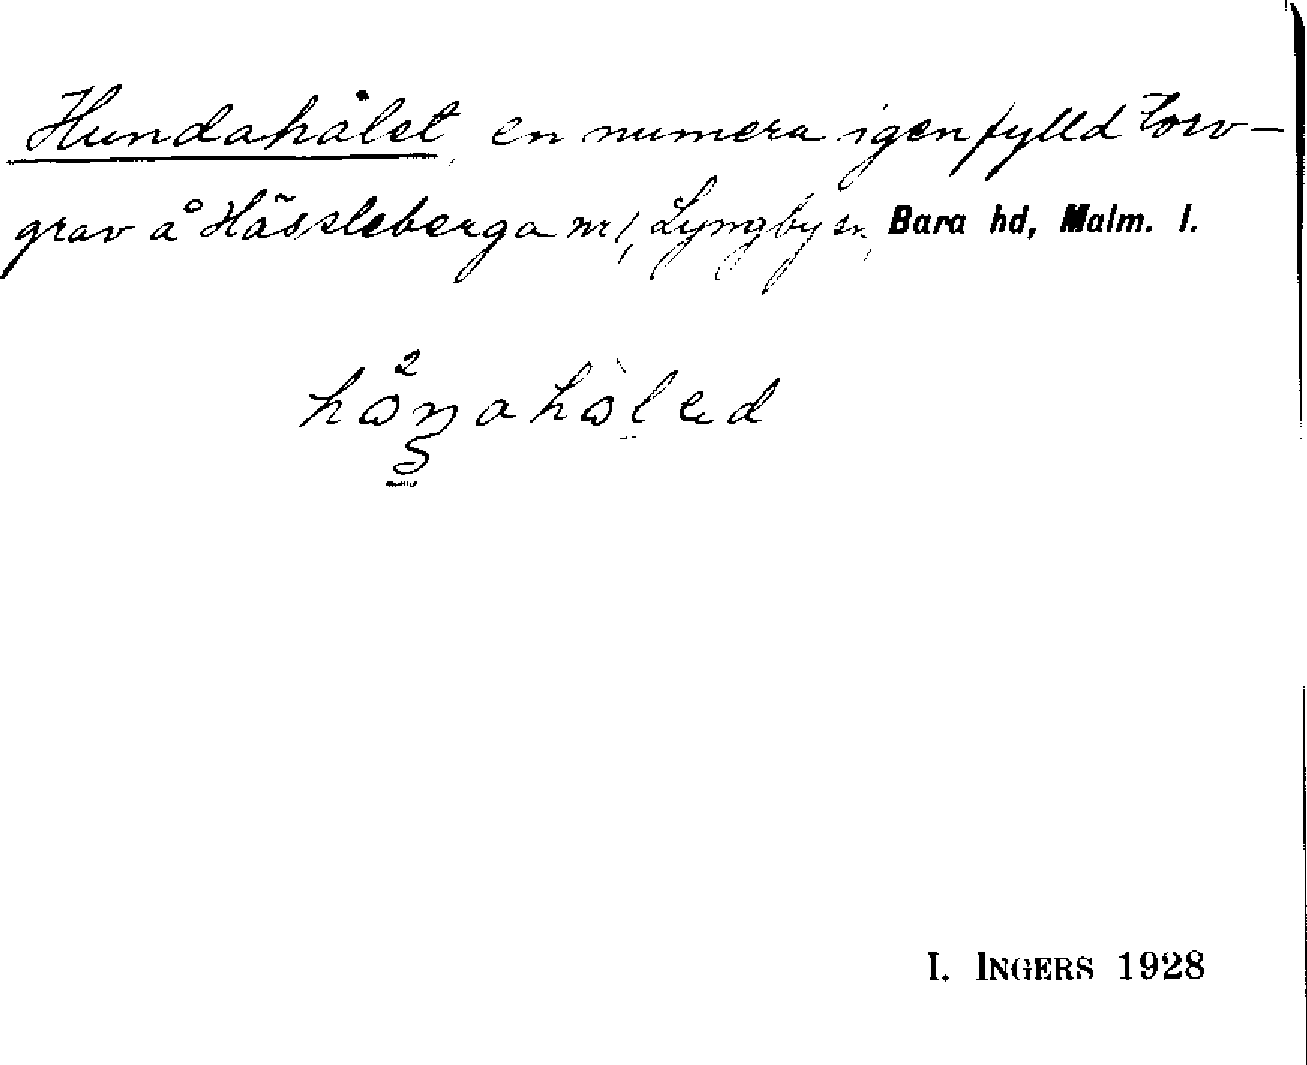 Hundahålet, en numera igenfylld torv-
grav å Hässleberga nr 1, Lyngby sn, Bara hd, Malm. l.
I. INGERS 1928